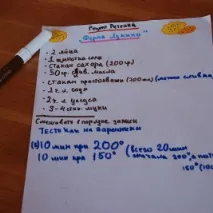 "Фирма Лукино"
- 2 яйца
- 1 щепотка соли
- стакан сахара (200 гр)
- 50 гр. слив. масла
- стакан простокваши (200 мл)
- 1 ч. л. соды
- 2 ч. л. уксуса
- 3-4 стак. муки
Смешивать в порядке записи
ТЕСТО КАК НА ВАРЕНИКИ
10 МИН ПРИ 200° (всего 20 мин
10 МИН ПРИ 150° сначала 200°, а пот
150°